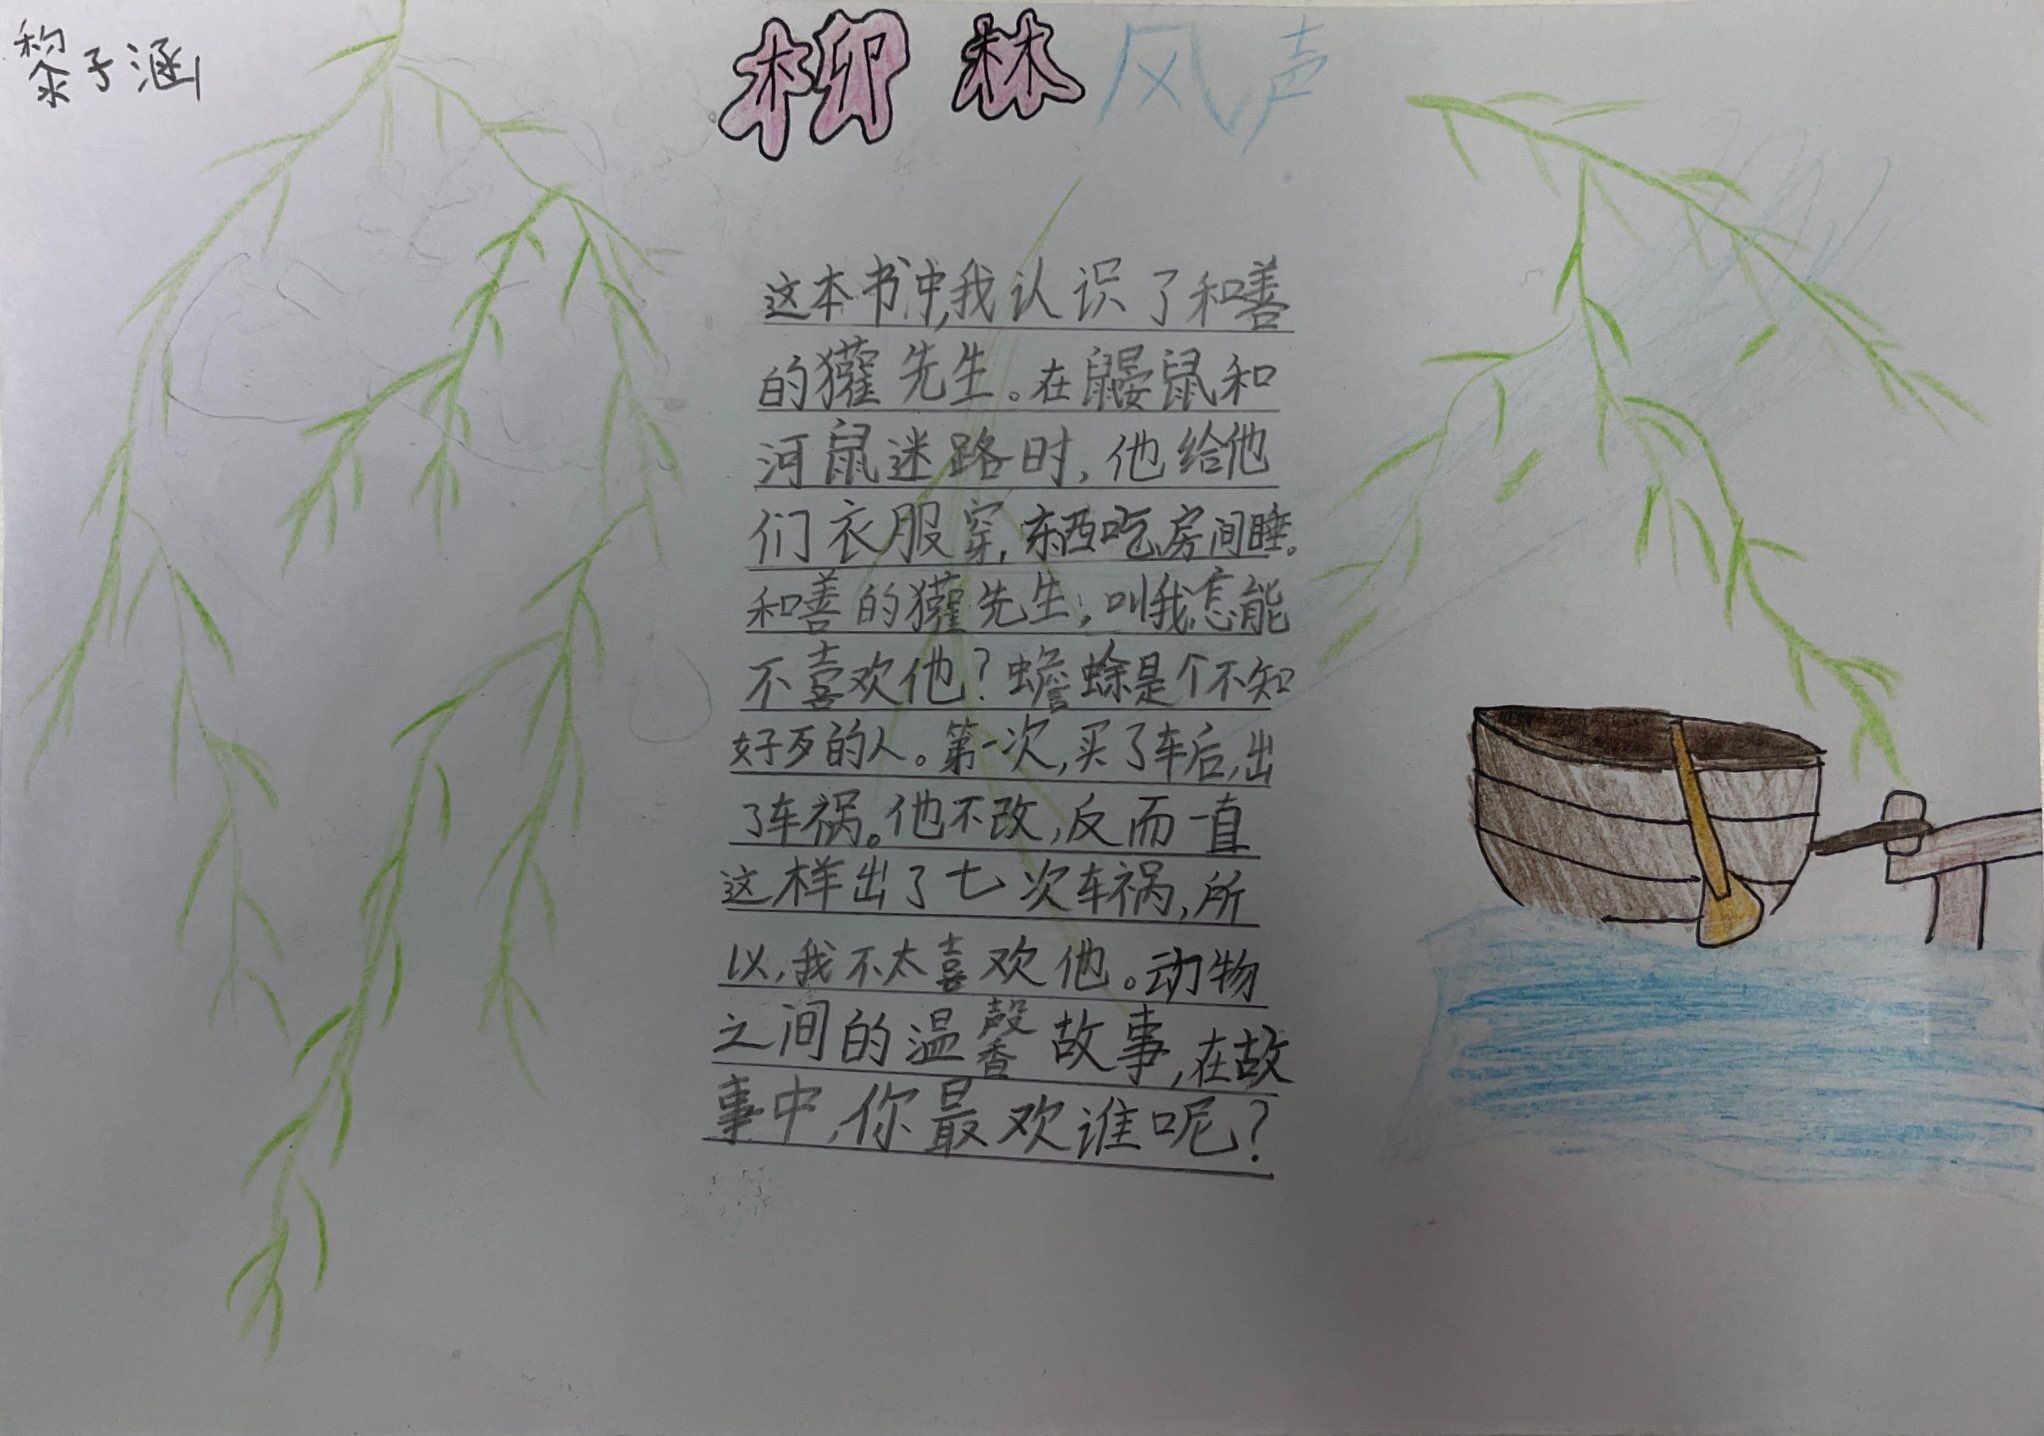 黎子涵
柳林风声
这本书中,我认识了和善
的獾先生。在鼹鼠和
河鼠迷路时,他给他
们衣服穿,东西吃,房间睡。
和善的獾先生,叫我怎能
不喜欢他?蟾蜍是个不知
好歹的人。第一次,买了车后,出
了车祸。他不改,反而一直
这样出了七次车祸,所
以,我不太喜欢他。动物
之间的温馨故事,在故
事中,你最欢谁呢?